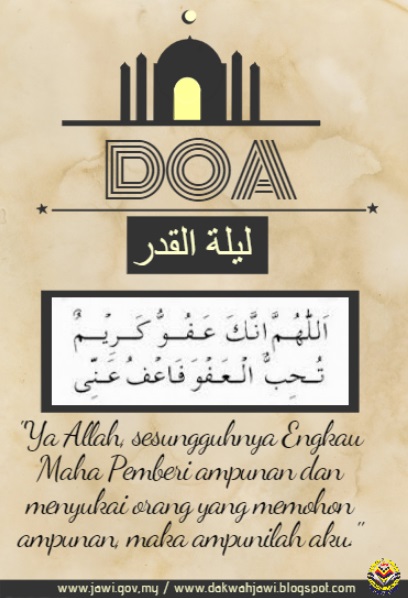 DOA
ليلة القدر
اَللّٰهُمَّ اِنَّكَ عَفُوٌّ كَرِيْمٌ
تُحِبُّ الْعَفْوَ فَاعْفُ عَنِّى
"Ya Allah, sesungguhnya Engkau
Maha Pemberi ampunan dan
menyukai orang yang memohon
ampunan, maka ampunilah aku."
www.jawi.gov.my / www.dakwahjawi.blogspot.com